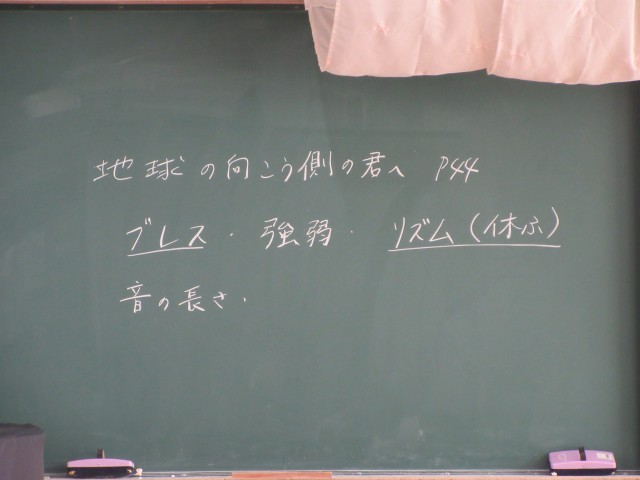 地球の向こう側の君へ P44
ブレス・強弱・リズム(休ぶ)
音の長さ・